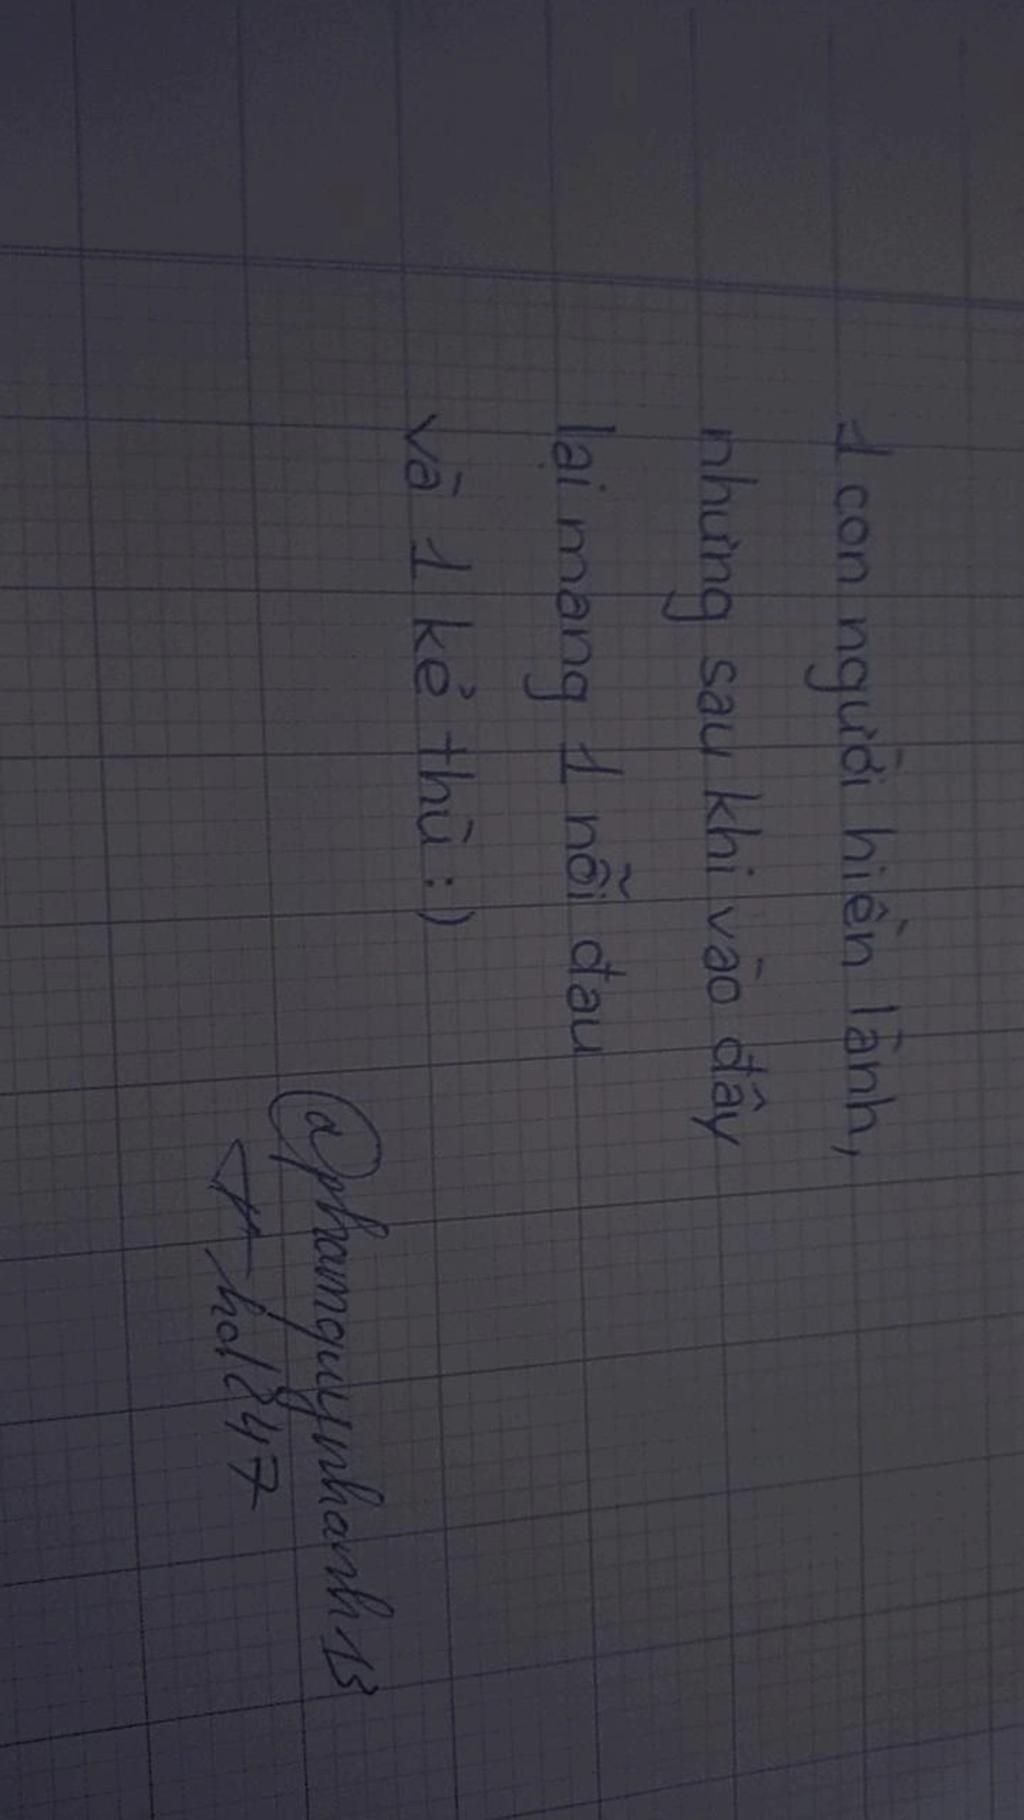 1 con người hiền lành,
nhưng sau khi vào đây
lại mang 1 nỗi đau
và 1 kẻ thù :)
@phamquynhanh13
hol247